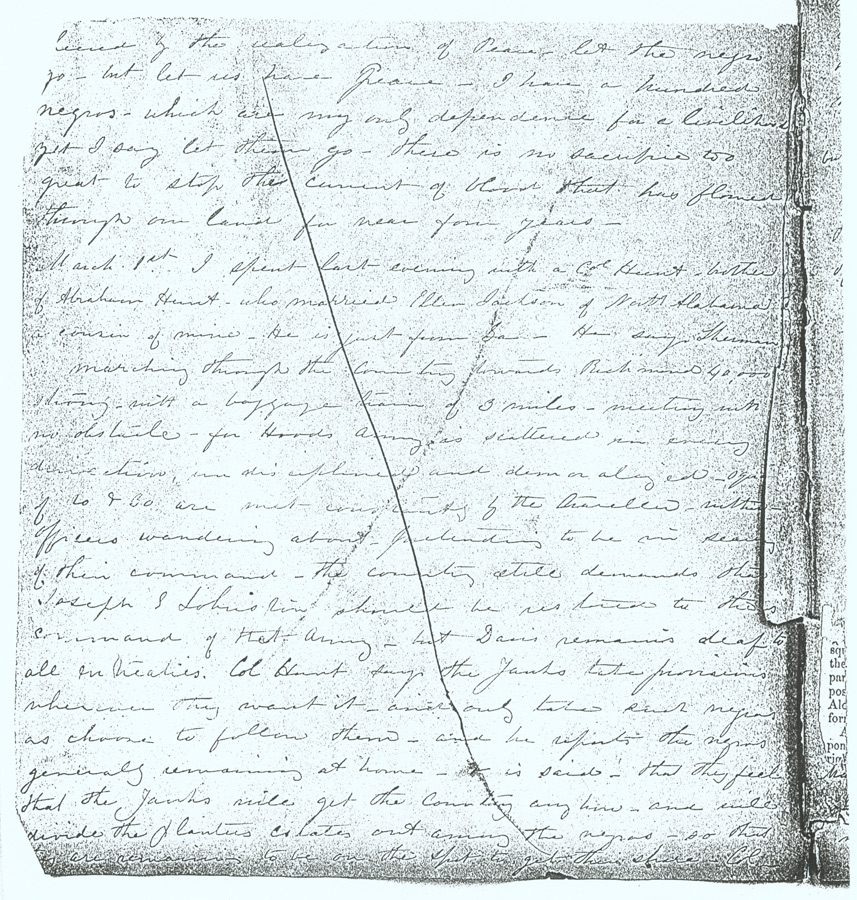 by the realization of Peace let the negro
go - but let us have Peace - I have a hundred
negros - which are my only dependence for a livelihood
yet I say let them go - there is no sacrifice too
great to stop the current of blood that has flowed
through our land for near four years -
March 1st. I spent last evening with a Col Hunt - brother
of Abraham Hunt - who married Ellen Jackson of North Alabama
cousin of mine - He is just from Ga - He says Sherman
marching through the Country towards Richmond 40,000
strong - with a baggage train of 3 miles - meeting with
no obstacle - for Hoods Army is scattered in every
direction, undisciplined and demoralized -
of 20 & 30 are met constantly by the traveller -
Officers wandering about - pretending to be in search
of their command - the country still demands that
Joseph E Johnston should be restored to the
command of that Army - but Davis remains deaf to
all entreaties. Col Hunt says the Yanks take provisions
wherever they want it - and only take such negros
as choose to follow them - and he reports the negros
generally remaining at home - is said - that they feel
that the Yanks will get the Country anyhow - and will
divide the planters estates out among the negros - so that
are remaining to be on the spot to get their share -
squ
the
par
pos
Alc
for
A
pon